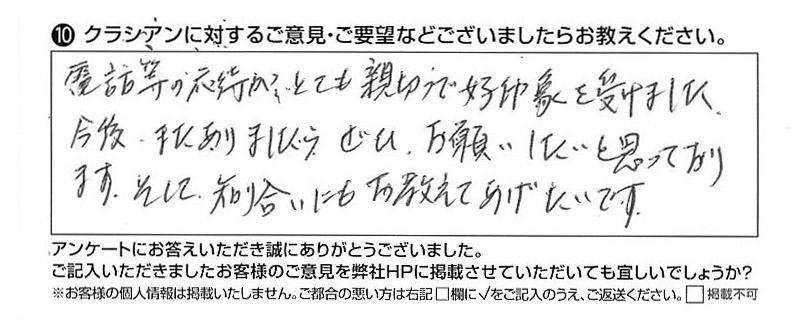 ❿ クラシアンに対するご意見・ご要望などございましたらお教えください。
電話等の応待がとても親切で好印象を受けました。
今後、またありましたら ぜひ、お願いしたいと思っており
ます。そして、知り合いにもお教えてあげたいです。
アンケートにお答えいただき誠にありがとうございました。
ご記入いただきましたお客様のご意見を弊社HPに掲載させていただいても宜しいでしょうか?
※お客様の個人情報は掲載いたしません。ご都合の悪い方は右記□欄に√をご記入のうえ、ご返送ください。□掲載不可